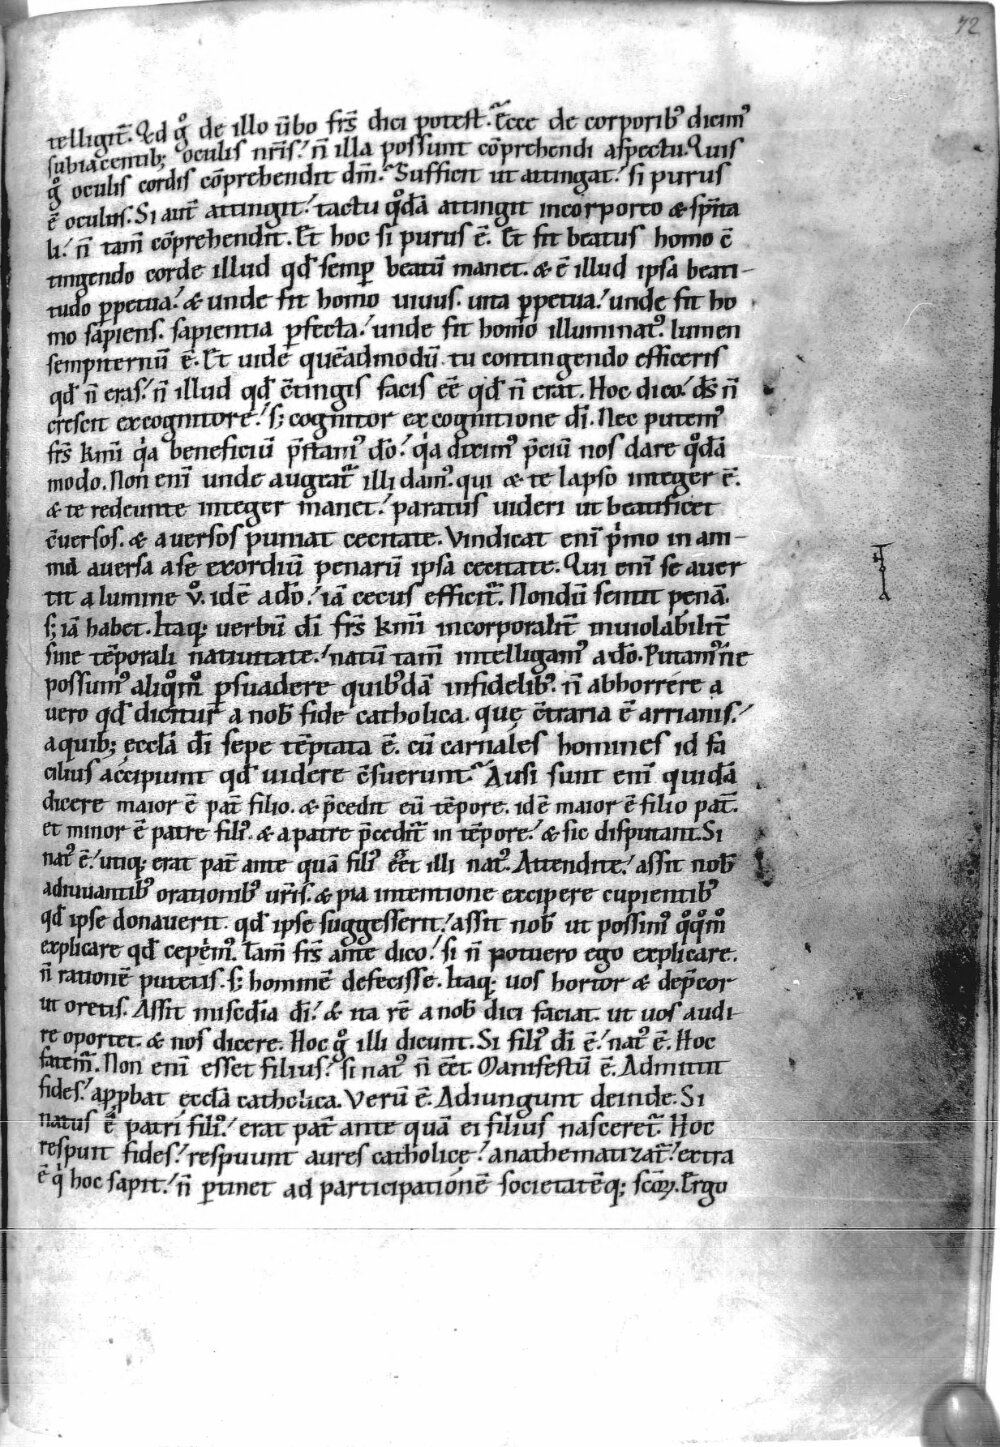 72
telligit᷑. Qd g̊ de illo ūbo frs̄ dici potest. Ecce de corporib᷒ dicim᷒
subiacentib; oculis nr̄is. n̄ illa possunt cōprehendi aspectu. Quis
g̊ oculis cordis cōprehendit dm̄. Sufficit ut attingat. si purus
ē oculus. Si aut̄ attingit. tactu qͦdā attingit incorporeo & spīta
li. n̄ tam̄ cōprehendit. Et hoc si purus ē. Et fit beatus homo c̄
tingendo corde illud qd̄ semp̄ beatū manet. & ē illud ipsa beati-
tudo ꝑpetua. & unde fit homo uiuus. uita ꝑpetua. unde fit ho
mo sapiens. sapientia ꝑfecta. unde fit homo illuminat᷒. lumen
sempiternū ē. Et uide quēadmodū tu contingendo efficeris
qd̄ n̄ eras. n̄ illud qd̄ c̄tingis facis eē qd̄ n̄ erat. Hoc dico. ds̄ n̄
crescit ex cognitore. s; cognitor ex cognitione dī. Nec putem᷒
frs̄ kmī q̇a beneficiū p̄stam᷒ dō. q̇a dixim᷒ p̄ciū nos dare qͦdā
modo. Non enī unde augeat᷑ illi dam᷒. qui & te lapso integer ē.
& te redeunte integer manet. paratus uideri ut beatificet
c̄uersos. & auersos puniat cecitate. Vindicat enī ṗmo in ani-
ma auersa a se exordiū penarū ipsa cecitate. Qui enī se auer
tit a lumine ůo. idē a dō. iā cecus efficit᷑. Nondū sentit penā.
s; iā habet. Itaq; uerbū dī frs̄ kmī incorporalit̄ inuiolabilit̄
sine tēporali natiuitate. natū tam̄ intelligam᷒ a dō. Putam᷒ne
possum᷒ aliqͦm̊ ꝑsuadere quib᷒dā infidelib᷒. n̄ abhorrere a
uero qd̄ dicitur a nob̄ fide catholica. quę c̄traria ē arrianis.
a quib; ęcclā dī sepe tēptata ē. cū carnales homines id fa
cilius accipiunt qd̄ uidere c̄sueruns. Ausi sunt enī quidā
dicere maior ē pat̄ filio. & p̄cedit eū tēpore. id ē maior ē filio pat̄.
et minor ē patre fili᷒. & a patre p̄cedit᷑ in tēpore. & sic disputant. Si
nat᷒ ē. utiq; erat pat̄ ante quā fili᷒ eēt illi nat᷒. Attendite. assit nob̄
adiuuantib᷒ orationib᷒ ur̄is. & pia intentione excipere cupientib᷒
qd̄ ipse donauerit. qd̄ ipse suggesserit. assit nob̄ ut possim᷒ qͦqͦm̊
explicare qd̄ cepim᷒. tam̄ frs̄ ante dico. si n̄ potuero ego explicare.
n̄ rationē putetis. s; hominē defecisse. Itaq; uos hortor & dep̄cor
ut oretis. Assit misedīa dī. & ita rē a nob̄ dici faciat. ut uos audi-
re oportet. & nos dicere. Hoc g̊ illi dicunt. Si fili᷒ dī ē. nat᷒ ē. Hoc
fatem᷑. Non enī esset filius. si nat᷒ n̄ eēt. Manifestū ē. Admittit
fides. apꝓbat ęcclā catholica. Verū ē. Adiungunt deinde. Si
natus ē patri fili᷒. erat pat̄ ante quā ei filius nasceret᷑. Hoc
respuit fides. respuunt aures catholicę. anathematizat᷑. extra
ē q̇ hoc sapit. n̄ ꝑtinet ad participationē societatēq; scōꝝ. Ergo